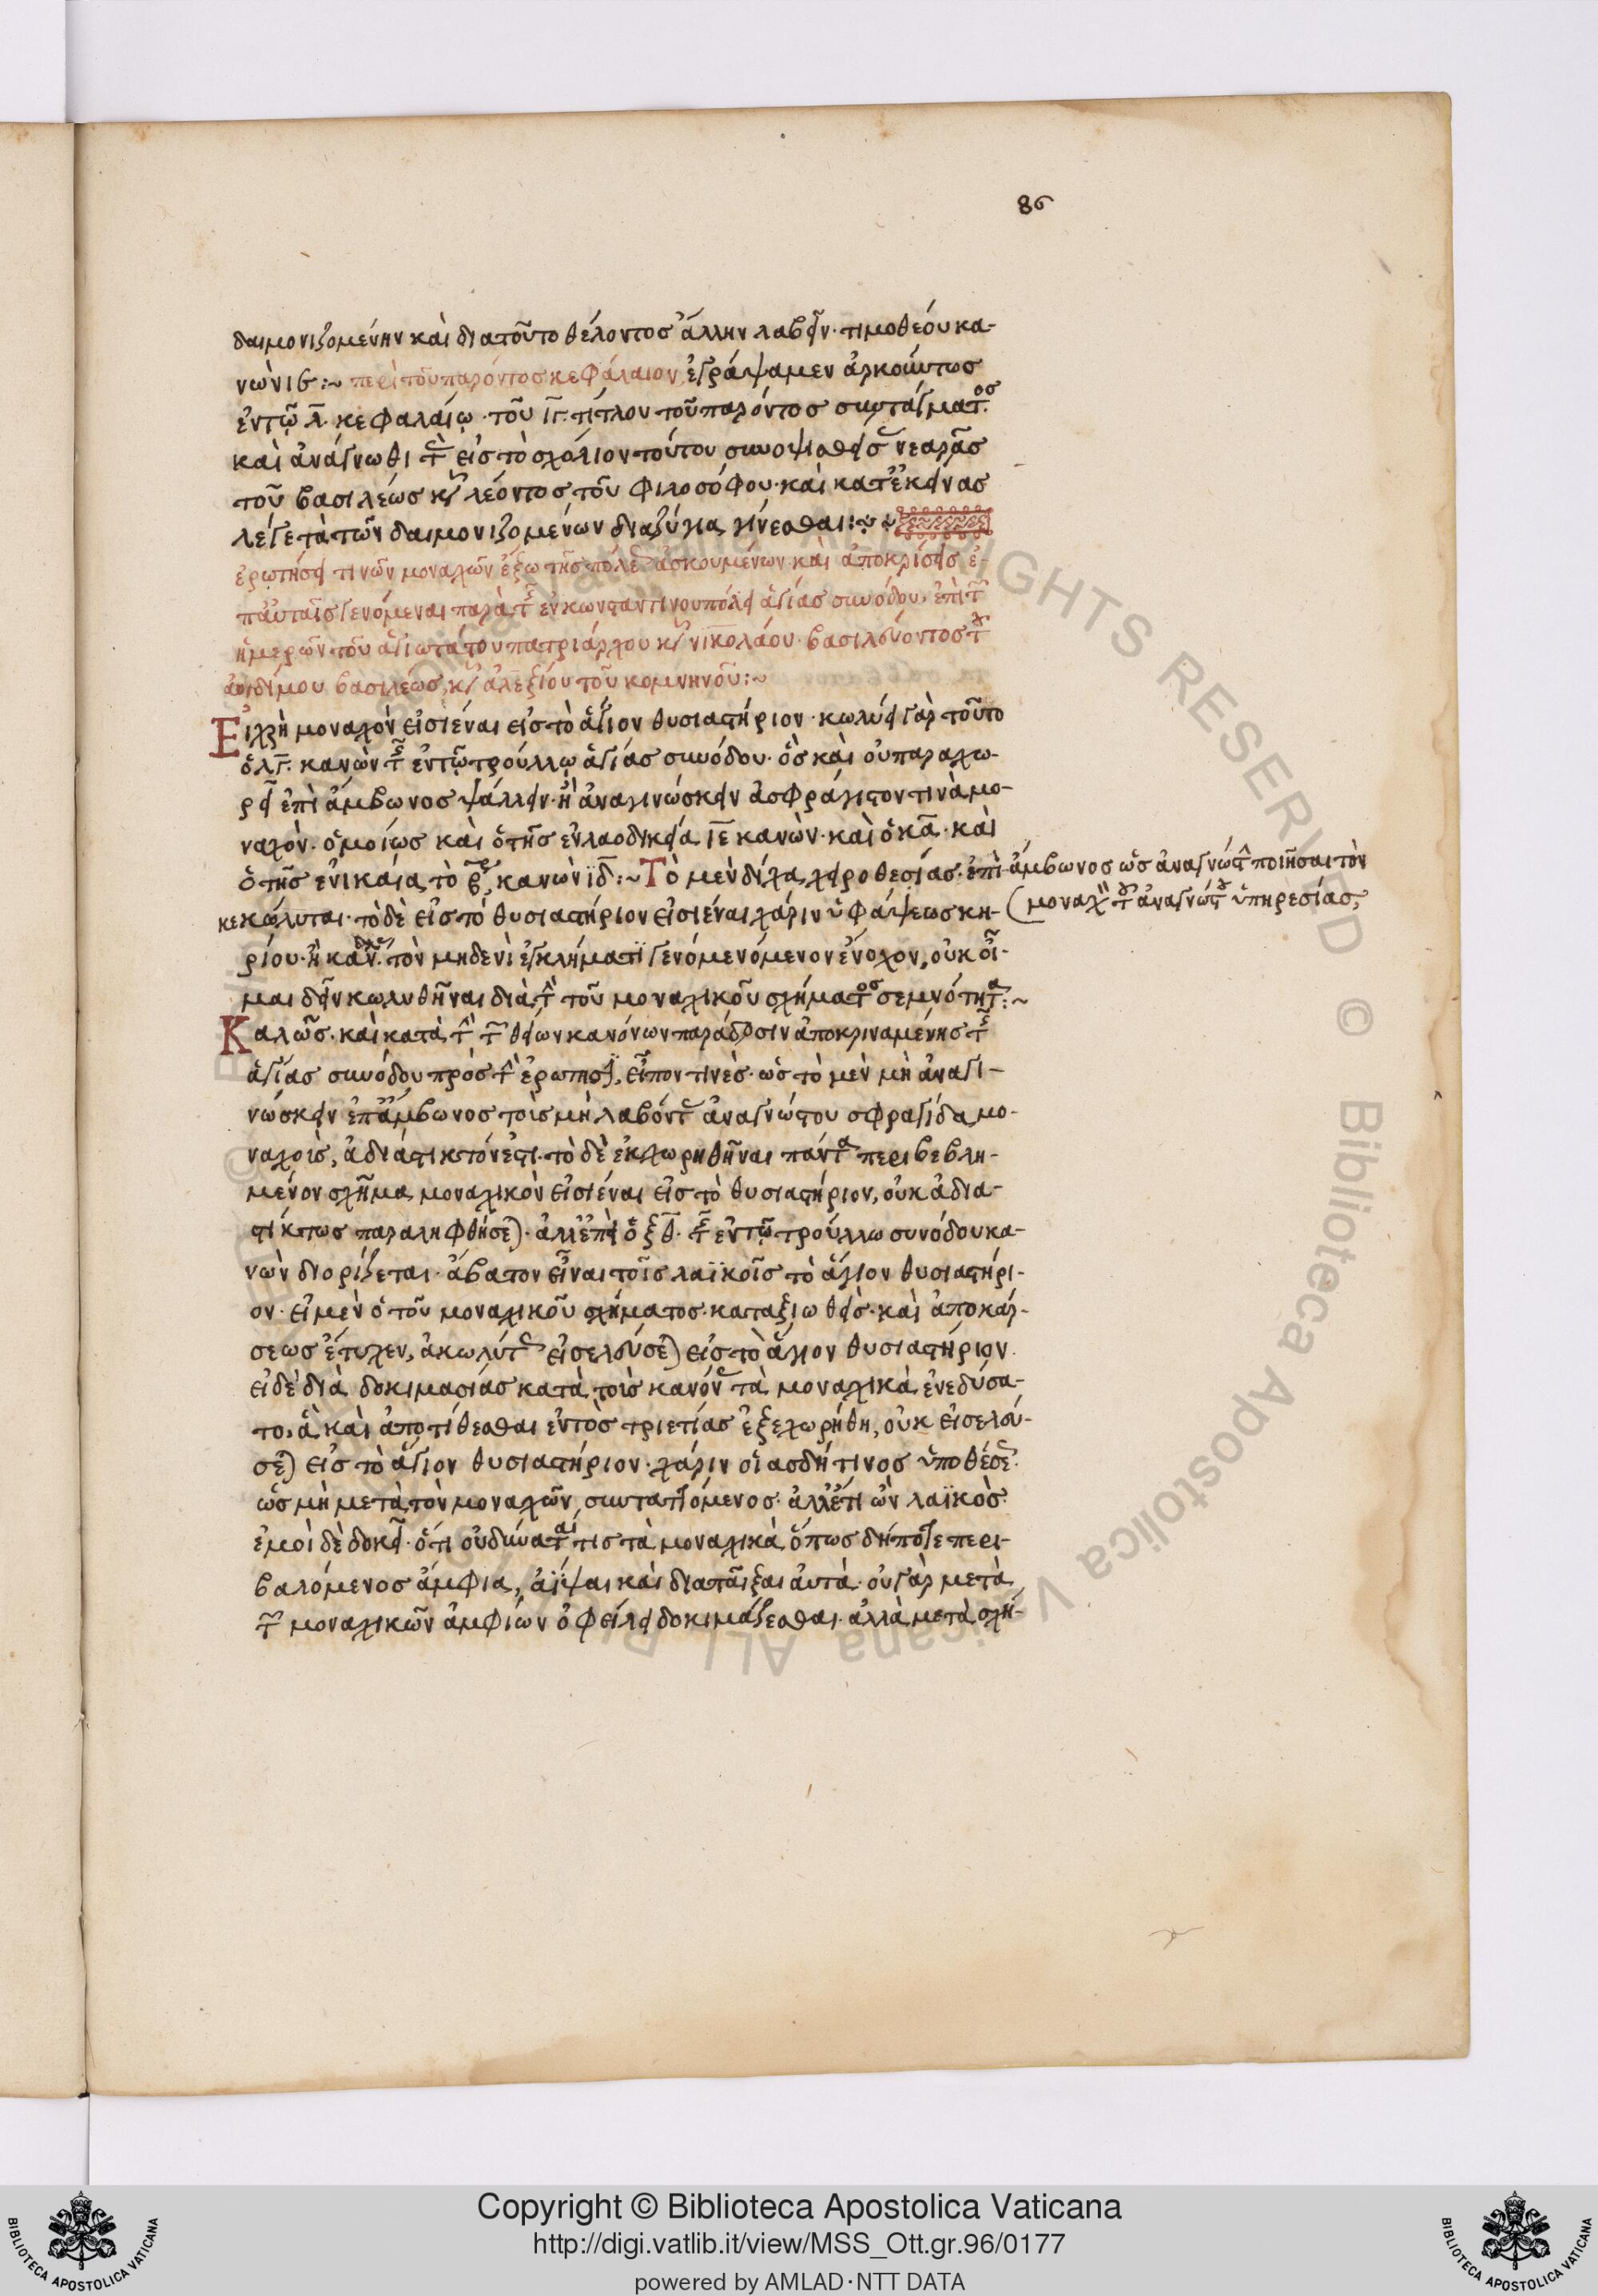 86
δαιμονιζομένην καὶ διατοῦτο θέλοντος ἄλλην λαβεῖν· τιμοθέου κα-
νὼν ιϛ :~ περὶ τοῦ παρόντος κεφάλαιον ἐγράψαμεν ἀρκούντως
ἐν τῷ λ. κεφαλαίω· τοῦ ιγ. τίτλου τοῦ παρόντος συντάγματος
καὶ ἀνάγνωθι τὴν εἰς τὸ σχόλιον τούτου συνοψισθεῖσαν νεαρᾶς
τοῦ βασιλέως κυροῦ λέοντος τοῦ φιλοσόφου· καὶ κατ' ἐκείνας
λέγε τὰ τῶν δαιμονιζομένων διαζύγια γίνεσθαι :~
ἐρωτήσεις τινῶν μοναχῶν ἔξω τῆς πόλεως ἀσκουμένων· καὶ ἀποκρίσεις ἐ-
π' αὐταῖς γενόμεναι παρὰ τῆς ἐν κωνσταντινουπόλει ἁγίας συνόδου, ἐπὶ τῶν
ἡμερῶν τοῦ ἁγιωτάτου πατριάρχου κυροῦ νικολάου· βασιλεύοντος τοῦ
ἀοιδίμου βασιλέως, κυροῦ ἀλεξίου τοῦ κομνηνοῦ :~
Εἰ χρὴ μοναχὸν εἰσιέναι εἰς τὸ ἅγιον θυσιαστήριον· κωλύει γὰρ τοῦτο
ὁ λγ. κανὼν τῆς ἐν τῷ τρούλλῳ ἁγίας συνόδου· ὃς καὶ οὐ παραχω-
ρεῖ ἐπὶ ἄμβωνος ψάλλειν· ἢ ἀναγινώσκειν ἀσφράγιστον τινὰ μο-
ναχὸν. ὁμοίως καὶ ὁ τῆς ἐν λαοδικεία ιε κανὼν· καὶ ὁ κα. καὶ
ὁ τῆς ἐν νικαία τὸ β, κανὼν ιδ :~ Τὸ μὲν δίχα χειροθεσίας· ἐπὶ ἄμβωνος ὡς ἀναγνώστην ποιῆσαι τὸν
κεκώλυται· τὸ δὲ εἰς τὸ θυσιαστήριον εἰσιέναι χάριν ὑφάψεως κη- (μοναχὸν τὴν ἀναγνώστου ὑπηρεσίας,
ρίου· ἢ κανδήλης. τὸν μηδενὶ ἐγκλήματι γενόμενόμενον ἔνοχον, οὐκ οἶ-
μαι δεῖν κωλυθῆναι διὰ τὴν τοῦ μοναχικοῦ σχήματος σεμνότητα :~
Καλῶς· καὶ κατὰ τὴν τῶν θείων κανόνων παράδοσιν ἀποκριναμένης τῆς
ἁγίας συνόδου πρὸς τὴν ἐρώτησιν, εἶπον τινὲς· ὡς τὸ μὲν μὴ ἀναγι-
νώσκειν ἐπ' ἄμβωνος τοῖς μὴ λαβόντας ἀναγνώστου σφραγίδα μο-
ναχοῖς, ἀδιάστικτόν ἐστι. τὸ δὲ ἐκχωρηθῆναι πάντα περιβεβλη-
μένον σχῆμα μοναχικὸν εἰσιέναι εἰς τὸ θυσιαστήριον, οὐκ ἀδια-
στίκτως παραληφθήσεται· ἀλλ' ἐπεὶ ὁ ξθ. τῆς ἐν τῷ τρούλλω συνόδου κα-
νὼν διορίζεται· ἄβατον εἶναι τοῖς λαϊκοῖς τὸ ἅγιον θυσιαστήρι-
ον· εἰ μὲν ὁ τοῦ μοναχικοῦ σχήματος· καταξιωθεὶς· καὶ ἀποκάρ-
σεως ἔτυχεν, ἀκωλύτως εἰσελεύσεται εἰς τὸ ἅγιον θυσιαστήριον
εἰ δὲ διὰ δοκιμασίας κατὰ τοὺς κανόνας τὰ μοναχικὰ ἐνεδύσα-
το, ἃ καὶ ἀποτίθεσθαι ἐντὸς τριετίας ἐξεχωρήθη, οὐκ εἰσελεύ-
σεται εἰς τὸ ἅγιον θυσιαστήριον· χάριν οἱασδήτινος ὑποθέσεως.
ὡς μὴ μετὰ τὸν μοναχῶν, συνταττόμενος· ἀλλ' ἔτι ὢν λαϊκὸς·
ἐμοὶ δὲ δοκεῖ· ὅτι οὐ δύναται τις τὰ μοναχικὰ ὅπως δήποτε περι-
βαλόμενος ἄμφια, ῥίψαι καὶ διαπαῖξαι αὐτά· οὐ γὰρ μετὰ
τῶν μοναχικῶν ἀμφίων ὀφείλει δοκιμάζεσθαι· ἀλλὰ μετὰ σχή-
Copyright © Biblioteca Apostolica Vaticana
http://digi.vatlib.it/view/MSS_Ott.gr.96/0177
powered by AMLAD·NTT DATA
BIBLIOTECA APOSTOLICA VATICANA
BIBLIOTECA APOSTOLICA VATICANA